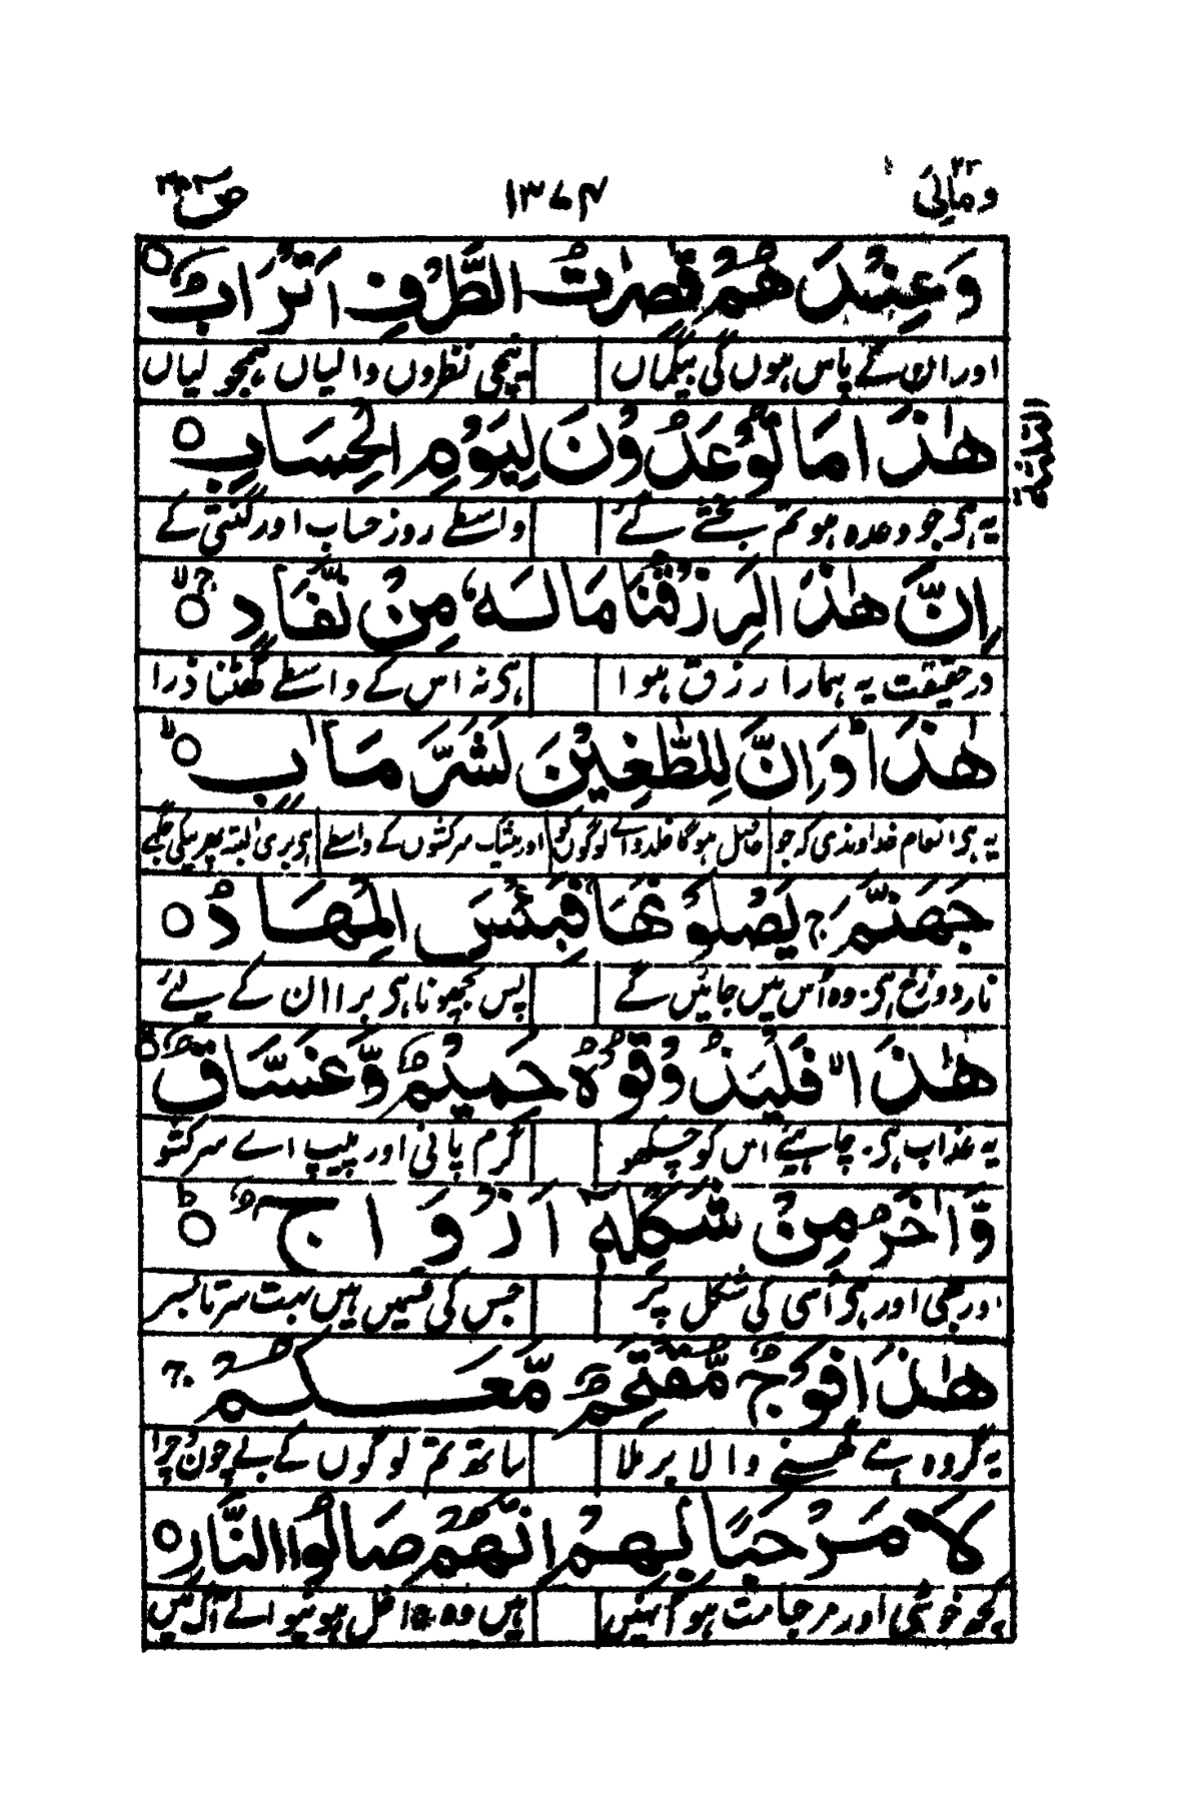 ومالی ۲۳ ۱۳۷۴ ص ۳۸
وَعِنْدَهُمْ قٰصِرٰتُ الطَّرْفِ اَتْرَابٌ ○
اور ان کے پاس ہوں گی بیگماں نیچی نظروں والیاں ہمجولیاں
هٰذَا مَا تُوْعَدُوْنَ لِيَوْمِ الْحِسَابِ ○
یہ ہی جو وعدہ ہو تم بخشے گئے واسطے روز حساب اور گنتی کے
اِنَّ هٰذَا لَرِزْقُنَا مَا لَهٗ مِنْ نَّفَادٍ ○
درحقیقت یہ ہمارا رزق ہوا ہی نہ اس کے واسطے گھٹنا ذرا
هٰذَا ؕ وَاِنَّ لِلطّٰغِيْنَ لَشَرَّ مَاٰبٍ ○
یہ ہی انعام خداوندی کہ جو حاصل ہوگا خلد والے لوگوں کو اور بیشک سرکشوں کے واسطے ہی بری البتہ پھر نیکی جگہے
جَهَنَّمَ ۚ يَصْلَوْنَهَا فَبِئْسَ الْمِهَادُ ○
نار دوزخ ہی وہ اُس میں جائیں گے پس بچھونا ہی برا ان کے لیے
هٰذَا ۙ فَلْيَذُوْقُوْهُ حَمِيْمٌ وَّغَسَّاقٌ ○
یہ عذاب ہی چاہیے اس کو چکھو گرم پانی اور پیپ اے سرکشو
وَّاٰخَرُ مِنْ شَكْلِهٖٓ اَزْوَاجٌ ○
اور بھی اور ہی اُسی کی شکل پر جس کی قسمیں ہیں بہت سر تا بسر
هٰذَا فَوْجٌ مُّقْتَحِمٌ مَّعَكُمْ ۚ
یہ گروہ ہے گھسنے والا برملا ساتھ تم لوگوں کے بے چون وچرا
لَا مَرْحَبًا بِهِمْ اِنَّهُمْ صَالُوا النَّارِ ○
کچھ خوشی اور مرحبا مت ہو انہیں ہیں وہ داخل ہونیوالے آگ میں